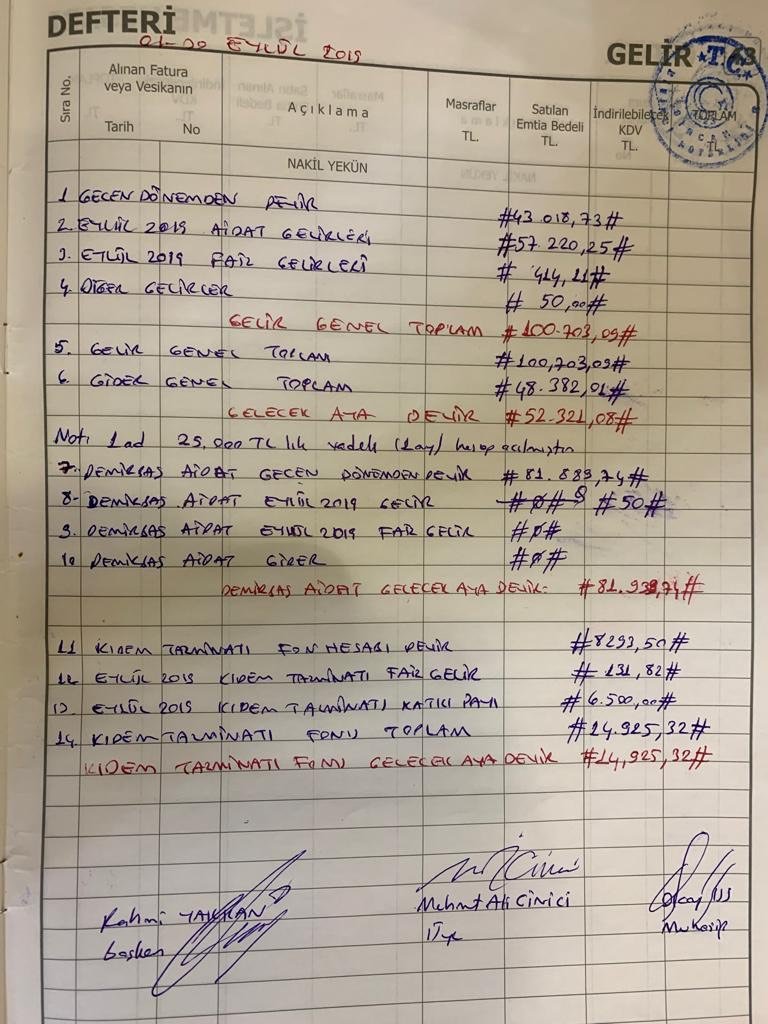 DEFTERİ
01-30 EYLÜL 2019
GELİR
Sıra No.
Alınan Fatura
veya Vesikanın
Tarih No
Açıklama
Masraflar
TL.
Satılan
Emtia Bedeli
TL.
İndirilebilecek
KDV
TL.
TOPLAM
TL.
NAKİL YEKÜN
1 GEÇEN DÖNEMDEN DEVİR #43.018,73#
2. EYLÜL 2019 AİDAT GELİRLERİ #57.220,25#
3. EYLÜL 2019 FAİZ GELİRLERİ # 414,11#
4. DİĞER GELİRLER # 50,00#
GELİR GENEL TOPLAM #100.703,09#
5. GELİR GENEL TOPLAM #100,703,09#
6. GİDER GENEL TOPLAM #48.382,01#
GELECEK AYA DEVİR #52.321,08#
Not: 1 ad 25,000 TL lik vadeli (1 ay) hesap açılmıştır
7. DEMİRBAŞ AİDAT GEÇEN DÖNEMDEN DEVİR #81.889,74#
8- DEMİRBAŞ AİDAT EYLÜL 2019 GELİR #50#
9. DEMİRBAŞ AİDAT EYLÜL 2019 FAİZ GELİR #0#
10 DEMİRBAŞ AİDAT GİDER #0#
DEMİRBAŞ AİDAT GELECEK AYA DEVİR: #81.939,74#
11 KIDEM TAZMİNATI FON HESABI DEVİR #8293,50#
12 EYLÜL 2019 KIDEM TAZMİNATI FAİZ GELİR # 131,82#
13 EYLÜL 2019 KIDEM TAZMİNATI KATKI PAYI #6.500,00#
14. KIDEM TAZMİNATI FONU TOPLAM #14.925,32#
KIDEM TAZMİNATI FONU GELECEK AYA DEVİR #14,925,32#
Rahmi
Mehmet Ali Cinici
Başkan
Üye
Murakıp